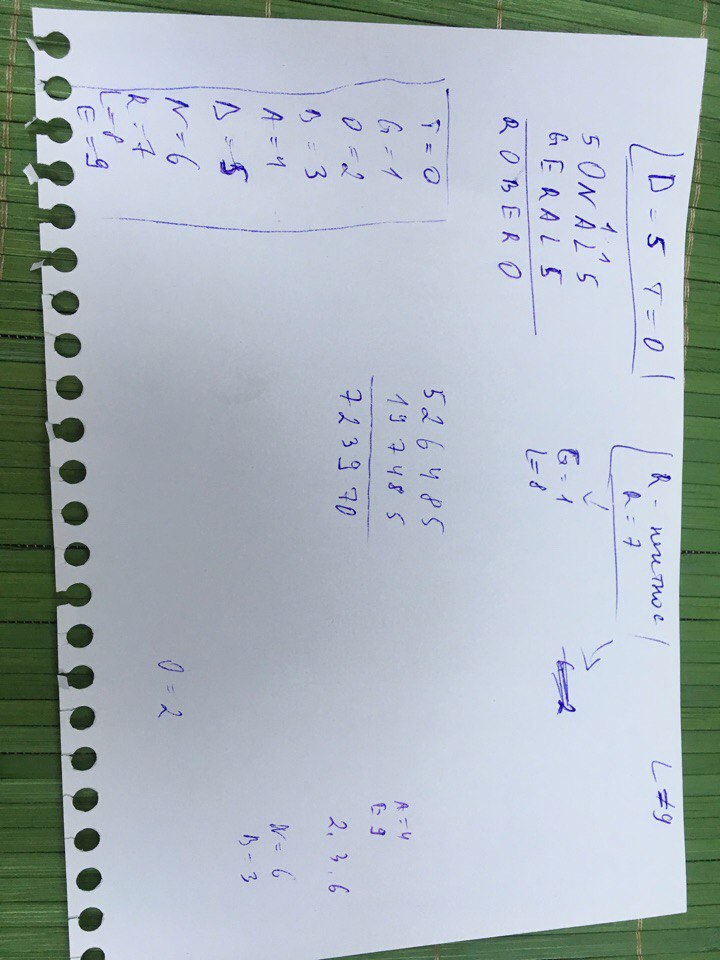 D = 5 T = 0
R - нечетное
R = 7
L ≠ 9
1 1 1
5 O N A L 5
G E R A L 5
R O B E R O
G = 1
L = 8
T = 0
G = 1
O = 2
B = 3
A = 4
D = 5
N = 6
R = 7
L = 8
E = 9
526485
197485
723970
A = 4
E = 9
2, 3, 6
N = 6
B = 3
O = 2